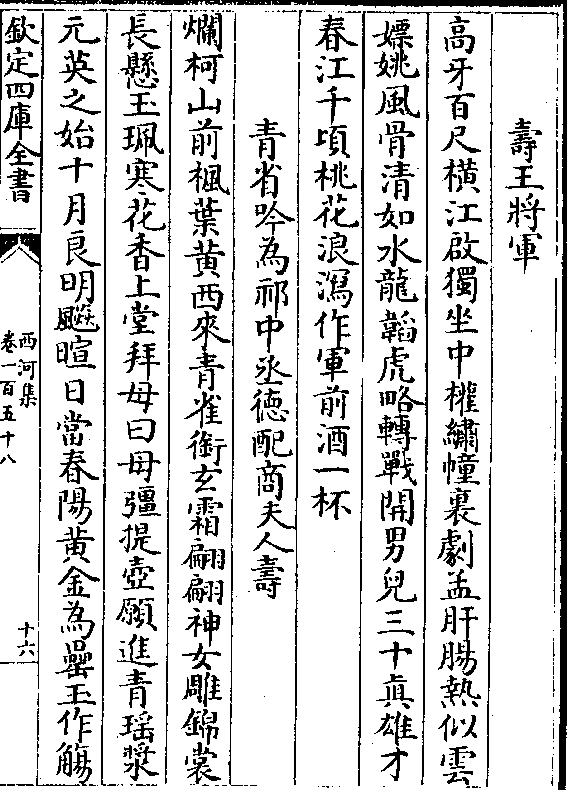 壽王將軍
高牙百尺橫江啟獨坐中權繡幢裏劇孟肝腸熱似雲
嫖姚風骨清如水龍韜虎略轉戰開男兒三十真雄才
春江千頃桃花浪瀉作軍前酒一杯
青省吟為祁中丞德配商夫人壽
爛柯山前楓葉黃西來青雀銜玄霜翩翩神女雕錦裳
長懸玉珮寒花香上堂拜母曰母彊提壺願進青瑤漿
元英之始十月良明飈暄日當春陽黃金為罍玉作觴
欽定四庫全書
西河集
卷一百五十八
十六